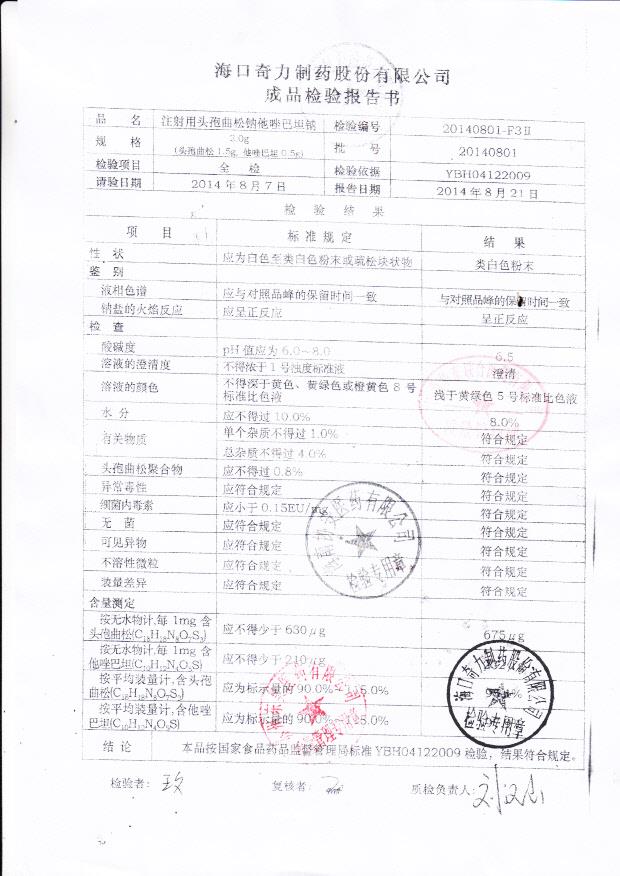 海口奇力制药股份有限公司
成品检验报告书
品 名 注射用头孢曲松钠他唑巴坦钠 检验编号 20140801-F3Ⅱ
规 格 2.0g (头孢曲松1.5g, 他唑巴坦0.5g) 批 号 20140801
检验项目 全 检 检验依据 YBH04122009
请验日期 2014年8月7日 报告日期 2014年8月21日
检 验 结 果
项 目 标准规定 结 果
性 状 应为白色至类白色粉末或疏松块状物 类白色粉末
鉴 别
液相色谱 应与对照品峰的保留时间一致 与对照品峰的保留时间一致
钠盐的火焰反应 应呈正反应 呈正反应
检 查
酸碱度 pH值应为6.0~8.0 6.5
溶液的澄清度 不得浓于1号浊度标准液 澄清
溶液的颜色 不得深于黄色、黄绿色或橙黄色8号标准比色液 浅于黄绿色5号标准比色液
水 分 应不得过10.0% 8.0%
有关物质 单个杂质不得过1.0% 符合规定
总杂质不得过4.0% 符合规定
头孢曲松聚合物 应不得过0.8% 符合规定
异常毒性 应符合规定 符合规定
细菌内毒素 应小于0.15EU/mg 符合规定
无 菌 应符合规定 符合规定
可见异物 应符合规定 符合规定
不溶性微粒 应符合规定 符合规定
装量差异 应符合规定 符合规定
含量测定
按无水物计,每1mg含
头孢曲松(C₁₈H₁₈N₈O₇S₃) 应不得少于630μg 675μg
按无水物计,每1mg含
他唑巴坦(C₁₀H₁₂N₄O₅S) 应不得少于210μg
按平均装量计,含头孢
曲松(C₁₈H₁₈N₈O₇S₃) 应为标示量的90.0%~115.0%
按平均装量计,含他唑
巴坦(C₁₀H₁₂N₄O₅S) 应为标示量的90.0%
结 论 本品按国家食品药品监督管理局标准YBH04122009检验,结果符合规定。
检验者: 复核者: 质检负责人:
海口奇力制药股份有限公司
检验专用章
医药有限公司
检验专用章